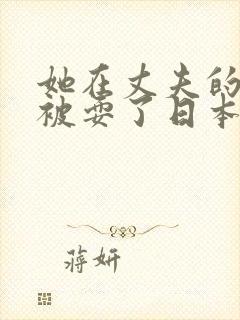 她在丈夫的
被耍了日本
蒋妍